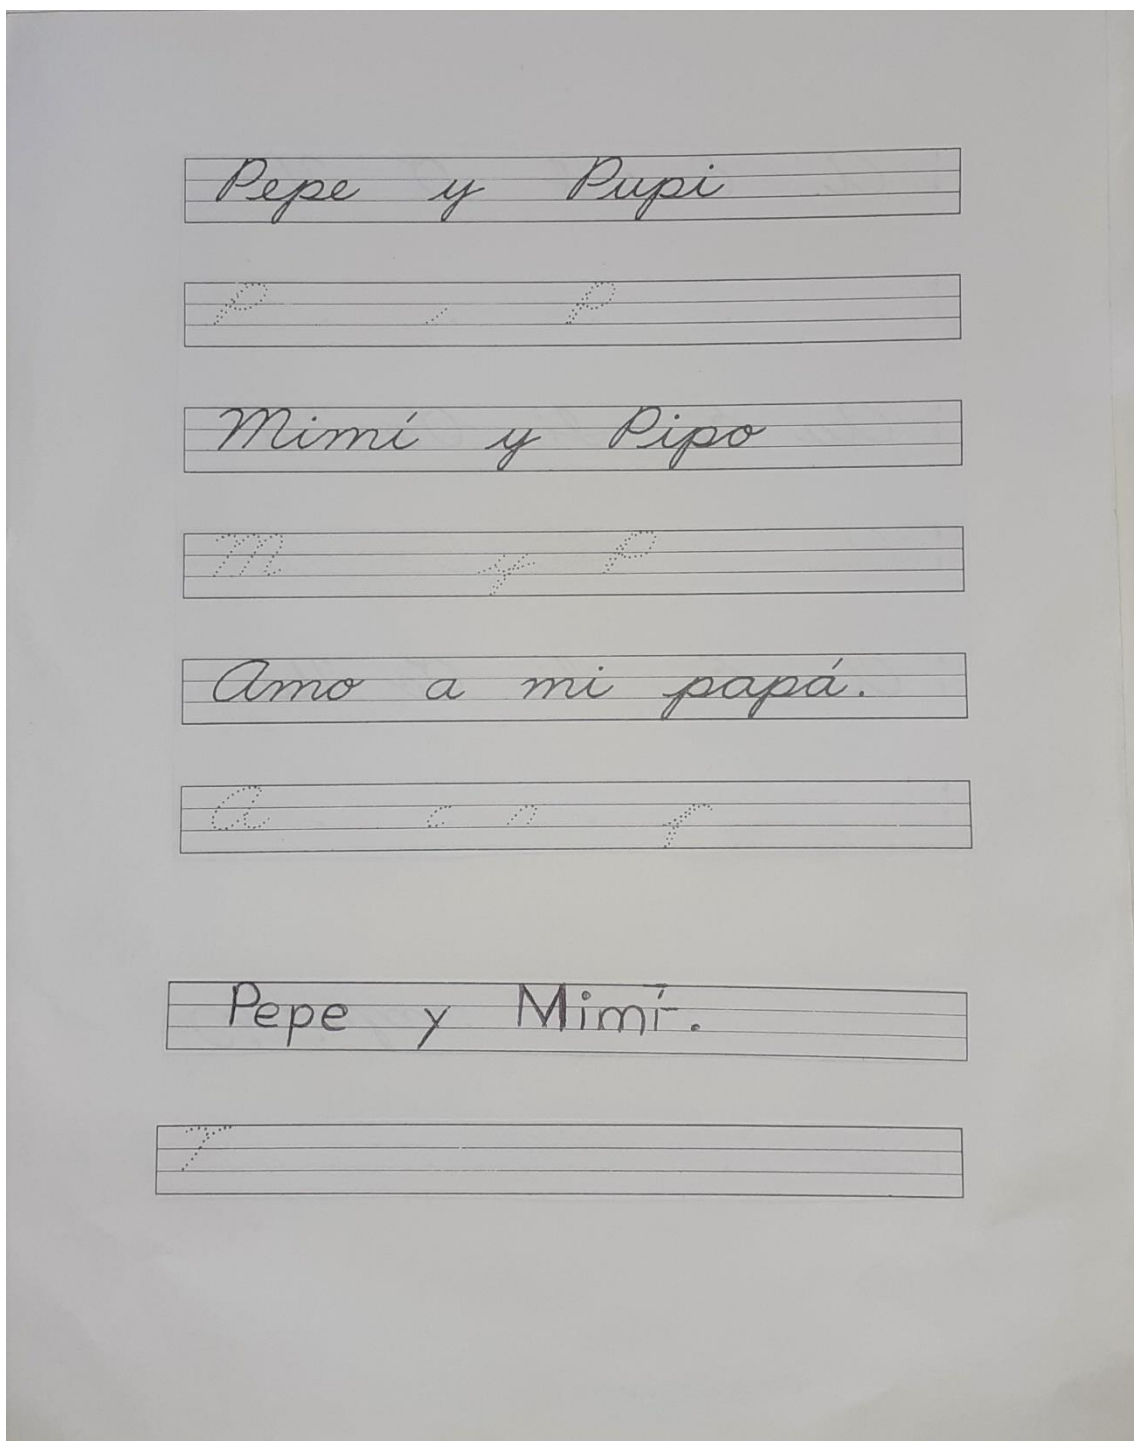 Pepe y Pupi
P P
Mimí y Pipo
M y P
Amo a mi papá.
A
Pepe y Mimí.